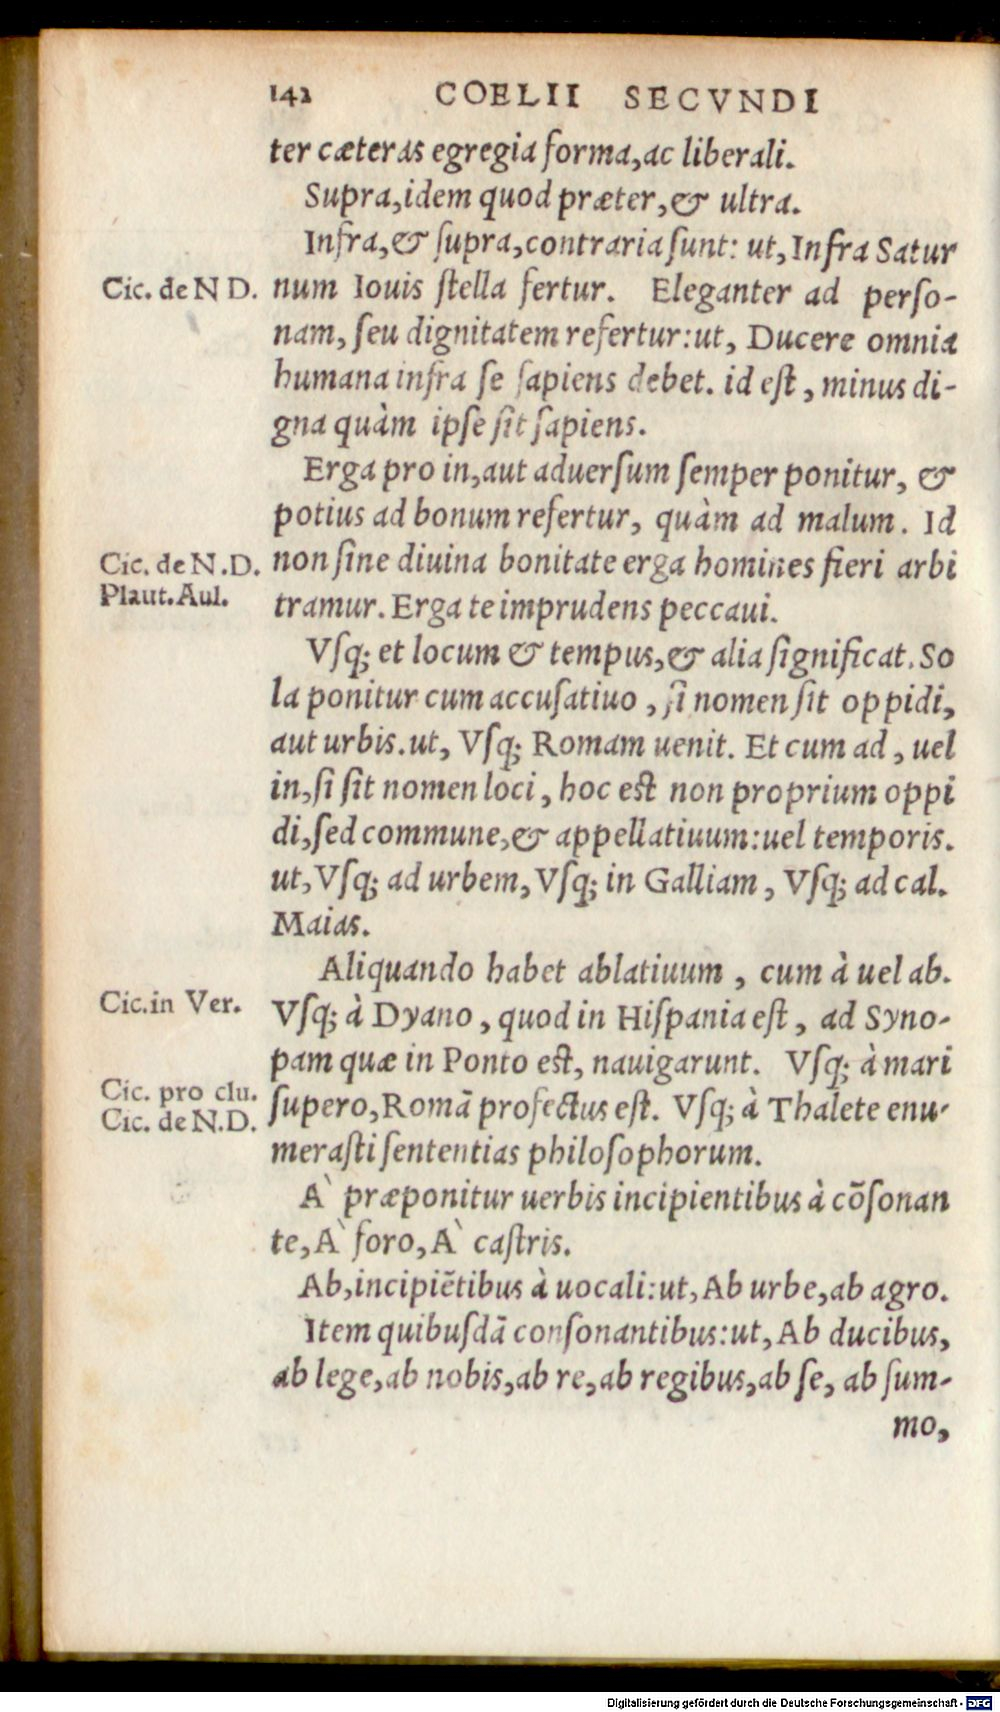 142 COELII SECVNDI
ter cæteras egregia forma, ac liberali.
Supra, idem quod præter, & ultra.
Infra, & ſupra, contraria ſunt: ut, Infra Satur
Cic. de N D. num Iouis ſtella fertur. Eleganter ad perſo-
nam, ſeu dignitatem refertur: ut, Ducere omnia
humana infra ſe ſapiens debet. id eſt, minus di-
gna quàm ipſe ſit ſapiens.
Erga pro in, aut aduerſum ſemper ponitur, &
potius ad bonum refertur, quàm ad malum. Id
Cic. de N.D. non ſine diuina bonitate erga homines fieri arbi
Plaut. Aul. tramur. Erga te imprudens peccaui.
Vſq; et locum & tempus, & alia ſignificat. So
la ponitur cum accuſatiuo, ſi nomen ſit oppidi,
aut urbis. ut, Vſq; Romam uenit. Et cum ad, uel
in, ſi ſit nomen loci, hoc eſt non proprium oppi
di, ſed commune, & appellatiuum: uel temporis.
ut, Vſq; ad urbem, Vſq; in Galliam, Vſq; ad cal.
Maias.
Aliquando habet ablatiuum, cum à uel ab.
Cic. in Ver. Vſq; à Dyano, quod in Hiſpania eſt, ad Syno-
pam quæ in Ponto eſt, nauigarunt. Vſq; à mari
Cic. pro clu. ſupero, Romā profectus eſt. Vſq; à Thalete enu-
Cic. de N.D. meraſti ſententias philoſophorum.
A` præponitur uerbis incipientibus à cōſonan
te, A` foro, A` caſtris.
Ab, incipiētibus à uocali: ut, Ab urbe, ab agro.
Item quibuſdā conſonantibus: ut, Ab ducibus,
ab lege, ab nobis, ab re, ab regibus, ab ſe, ab ſum-
mo,
Digitalisierung gefördert durch die Deutsche Forschungsgemeinschaft - DFG